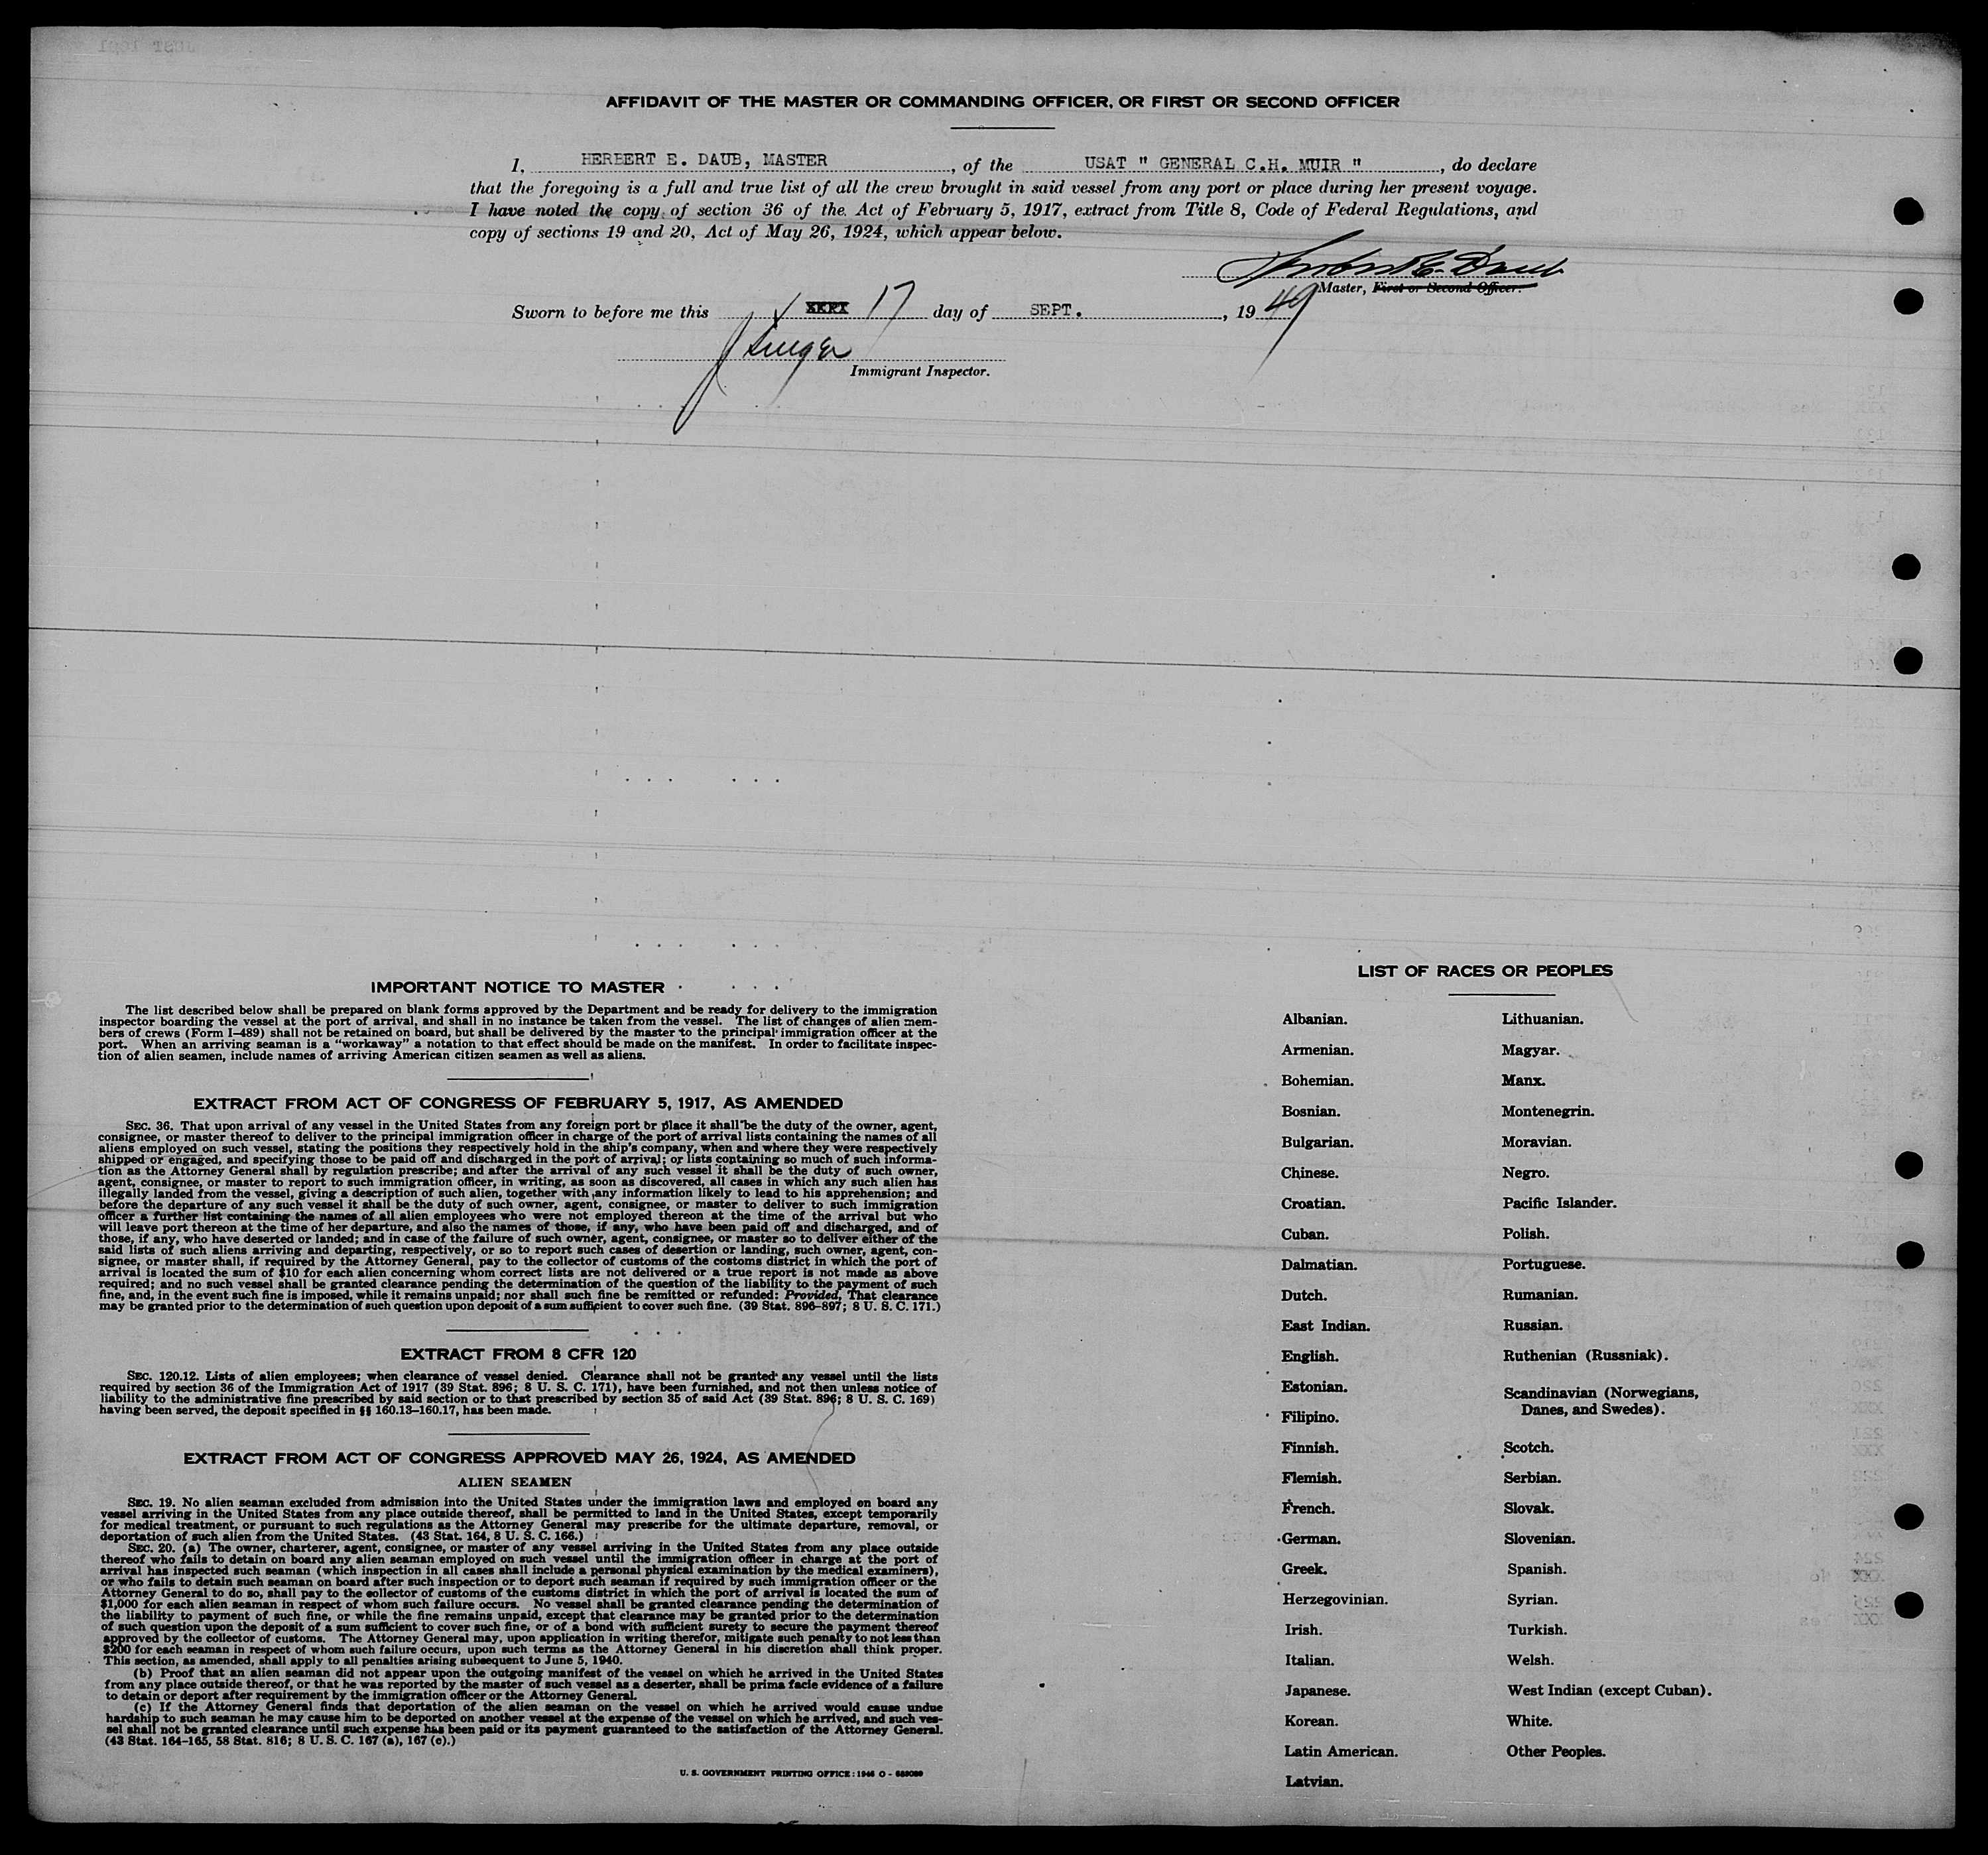 AFFIDAVIT OF THE MASTER OR COMMANDING OFFICER, OR FIRST OR SECOND OFFICER
I, HERBERT E. DAUB, MASTER, of the USAT " GENERAL C.H. MUIR ", do declare
that the foregoing is a full and true list of all the crew brought in said vessel from any port or place during her present voyage.
I have noted the copy of section 36 of the Act of February 5, 1917, extract from Title 8, Code of Federal Regulations, and
copy of sections 19 and 20, Act of May 26, 1924, which appear below.
Herbert E. Daub
Master, First or Second Officer.
Sworn to before me this 17 day of SEPT., 1949
Immigrant Inspector.
IMPORTANT NOTICE TO MASTER
The list described below shall be prepared on blank forms approved by the Department and be ready for delivery to the immigration
inspector boarding the vessel at the port of arrival, and shall in no instance be taken from the vessel. The list of changes of alien mem-
bers of crews (Form I-489) shall not be retained on board, but shall be delivered by the master to the principal immigration officer at the
port. When an arriving seaman is a "workaway" a notation to that effect should be made on the manifest. In order to facilitate inspec-
tion of alien seamen, include names of arriving American citizen seamen as well as aliens.
EXTRACT FROM ACT OF CONGRESS OF FEBRUARY 5, 1917, AS AMENDED
SEC. 36. That upon arrival of any vessel in the United States from any foreign port or place it shall be the duty of the owner, agent,
consignee, or master thereof to deliver to the principal immigration officer in charge of the port of arrival lists containing the names of all
aliens employed on such vessel, stating the positions they respectively hold in the ship's company, when and where they were respectively
shipped or engaged, and specifying those to be paid off and discharged in the port of arrival; or lists containing so much of such informa-
tion as the Attorney General shall by regulation prescribe; and after the arrival of any such vessel it shall be the duty of such owner,
agent, consignee, or master to report to such immigration officer, in writing, as soon as discovered, all cases in which any such alien has
illegally landed from the vessel, giving a description of such alien, together with any information likely to lead to his apprehension; and
before the departure of any such vessel it shall be the duty of such owner, agent, consignee, or master to deliver to such immigration
officer a further list containing the names of all alien employees who were not employed thereon at the time of the arrival but who
will leave port thereon at the time of her departure, and also the names of those, if any, who have been paid off and discharged, and of
those, if any, who have deserted or landed; and in case of the failure of such owner, agent, consignee, or master so to deliver either of the
said lists of such aliens arriving and departing, respectively, or so to report such cases of desertion or landing, such owner, agent, con-
signee, or master shall, if required by the Attorney General, pay to the collector of customs of the costoms district in which the port of
arrival is located the sum of $10 for each alien concerning whom correct lists are not delivered or a true report is not made as above
required; and no such vessel shall be granted clearance pending the determination of the question of the liability to the payment of such
fine, and, in the event such fine is imposed, while it remains unpaid; nor shall such fine be remitted or refunded: Provided, That clearance
may be granted prior to the determination of such question upon deposit of a sum sufficient to cover such fine. (39 Stat. 896-897; 8 U. S. C. 171.)
EXTRACT FROM 8 CFR 120
SEC. 120.12. Lists of alien employees; when clearance of vessel denied. Clearance shall not be granted any vessel until the lists
required by section 36 of the Immigration Act of 1917 (39 Stat. 896; 8 U. S. C. 171), have been furnished, and not then unless notice of
liability to the administrative fine prescribed by said section or to that prescribed by section 35 of said Act (39 Stat. 896; 8 U. S. C. 169)
having been served, the deposit specified in §§ 160.13-160.17, has been made.
EXTRACT FROM ACT OF CONGRESS APPROVED MAY 26, 1924, AS AMENDED
ALIEN SEAMEN
SEC. 19. No alien seaman excluded from admission into the United States under the immigration laws and employed on board any
vessel arriving in the United States from any place outside thereof, shall be permitted to land in the United States, except temporarily
for medical treatment, or pursuant to such regulations as the Attorney General may prescribe for the ultimate departure, removal, or
deportation of such alien from the United States. (43 Stat. 164, 8 U. S. C. 166.)
SEC. 20. (a) The owner, charterer, agent, consignee, or master of any vessel arriving in the United States from any place outside
thereof who fails to detain on board any alien seaman employed on such vessel until the immigration officer in charge at the port of
arrival has inspected such seaman (which inspection in all cases shall include a personal physical examination by the medical examiners),
or who fails to detain such seaman on board after such inspection or to deport such seaman if required by such immigration officer or the
Attorney General to do so, shall pay to the collector of customs of the customs district in which the port of arrival is located the sum of
$1,000 for each alien seaman in respect of whom such failure occurs. No vessel shall be granted clearance pending the determination of
the liability to payment of such fine, or while the fine remains unpaid, except that clearance may be granted prior to the determination
of such question upon the deposit of a sum sufficient to cover such fine, or of a bond with sufficient surety to secure the payment thereof
approved by the collector of customs. The Attorney General may, upon application in writing therefor, mitigate such penalty to not less than
$200 for each seaman in respect of whom such failure occurs, upon such terms as the Attorney General in his discretion shall think proper.
This section, as amended, shall apply to all penalties arising subsequent to June 5, 1940.
(b) Proof that an alien seaman did not appear upon the outgoing manifest of the vessel on which he arrived in the United States
from any place outside thereof, or that he was reported by the master of such vessel as a deserter, shall be prima facie evidence of a failure
to detain or deport after requirement by the immigration officer or the Attorney General.
(c) If the Attorney General finds that deportation of the alien seaman on the vessel on which he arrived would cause undue
hardship to such seaman he may cause him to be deported on another vessel at the expense of the vessel on which he arrived, and such ves-
sel shall not be granted clearance until such expense has been paid or its payment guaranteed to the satisfaction of the Attorney General.
(43 Stat. 164-165, 58 Stat. 816; 8 U. S. C. 167 (a), 167 (c).)
U. S. GOVERNMENT PRINTING OFFICE : 1946 O -
LIST OF RACES OR PEOPLES
Albanian.
Armenian.
Bohemian.
Bosnian.
Bulgarian.
Chinese.
Croatian.
Cuban.
Dalmatian.
Dutch.
East Indian.
English.
Estonian.
Filipino.
Finnish.
Flemish.
French.
German.
Greek.
Herzegovinian.
Irish.
Italian.
Japanese.
Korean.
Latin American.
Latvian.
Lithuanian.
Magyar.
Manx.
Montenegrin.
Moravian.
Negro.
Pacific Islander.
Polish.
Portuguese.
Rumanian.
Russian.
Ruthenian (Russniak).
Scandinavian (Norwegians,
Danes, and Swedes).
Scotch.
Serbian.
Slovak.
Slovenian.
Spanish.
Syrian.
Turkish.
Welsh.
West Indian (except Cuban).
White.
Other Peoples.